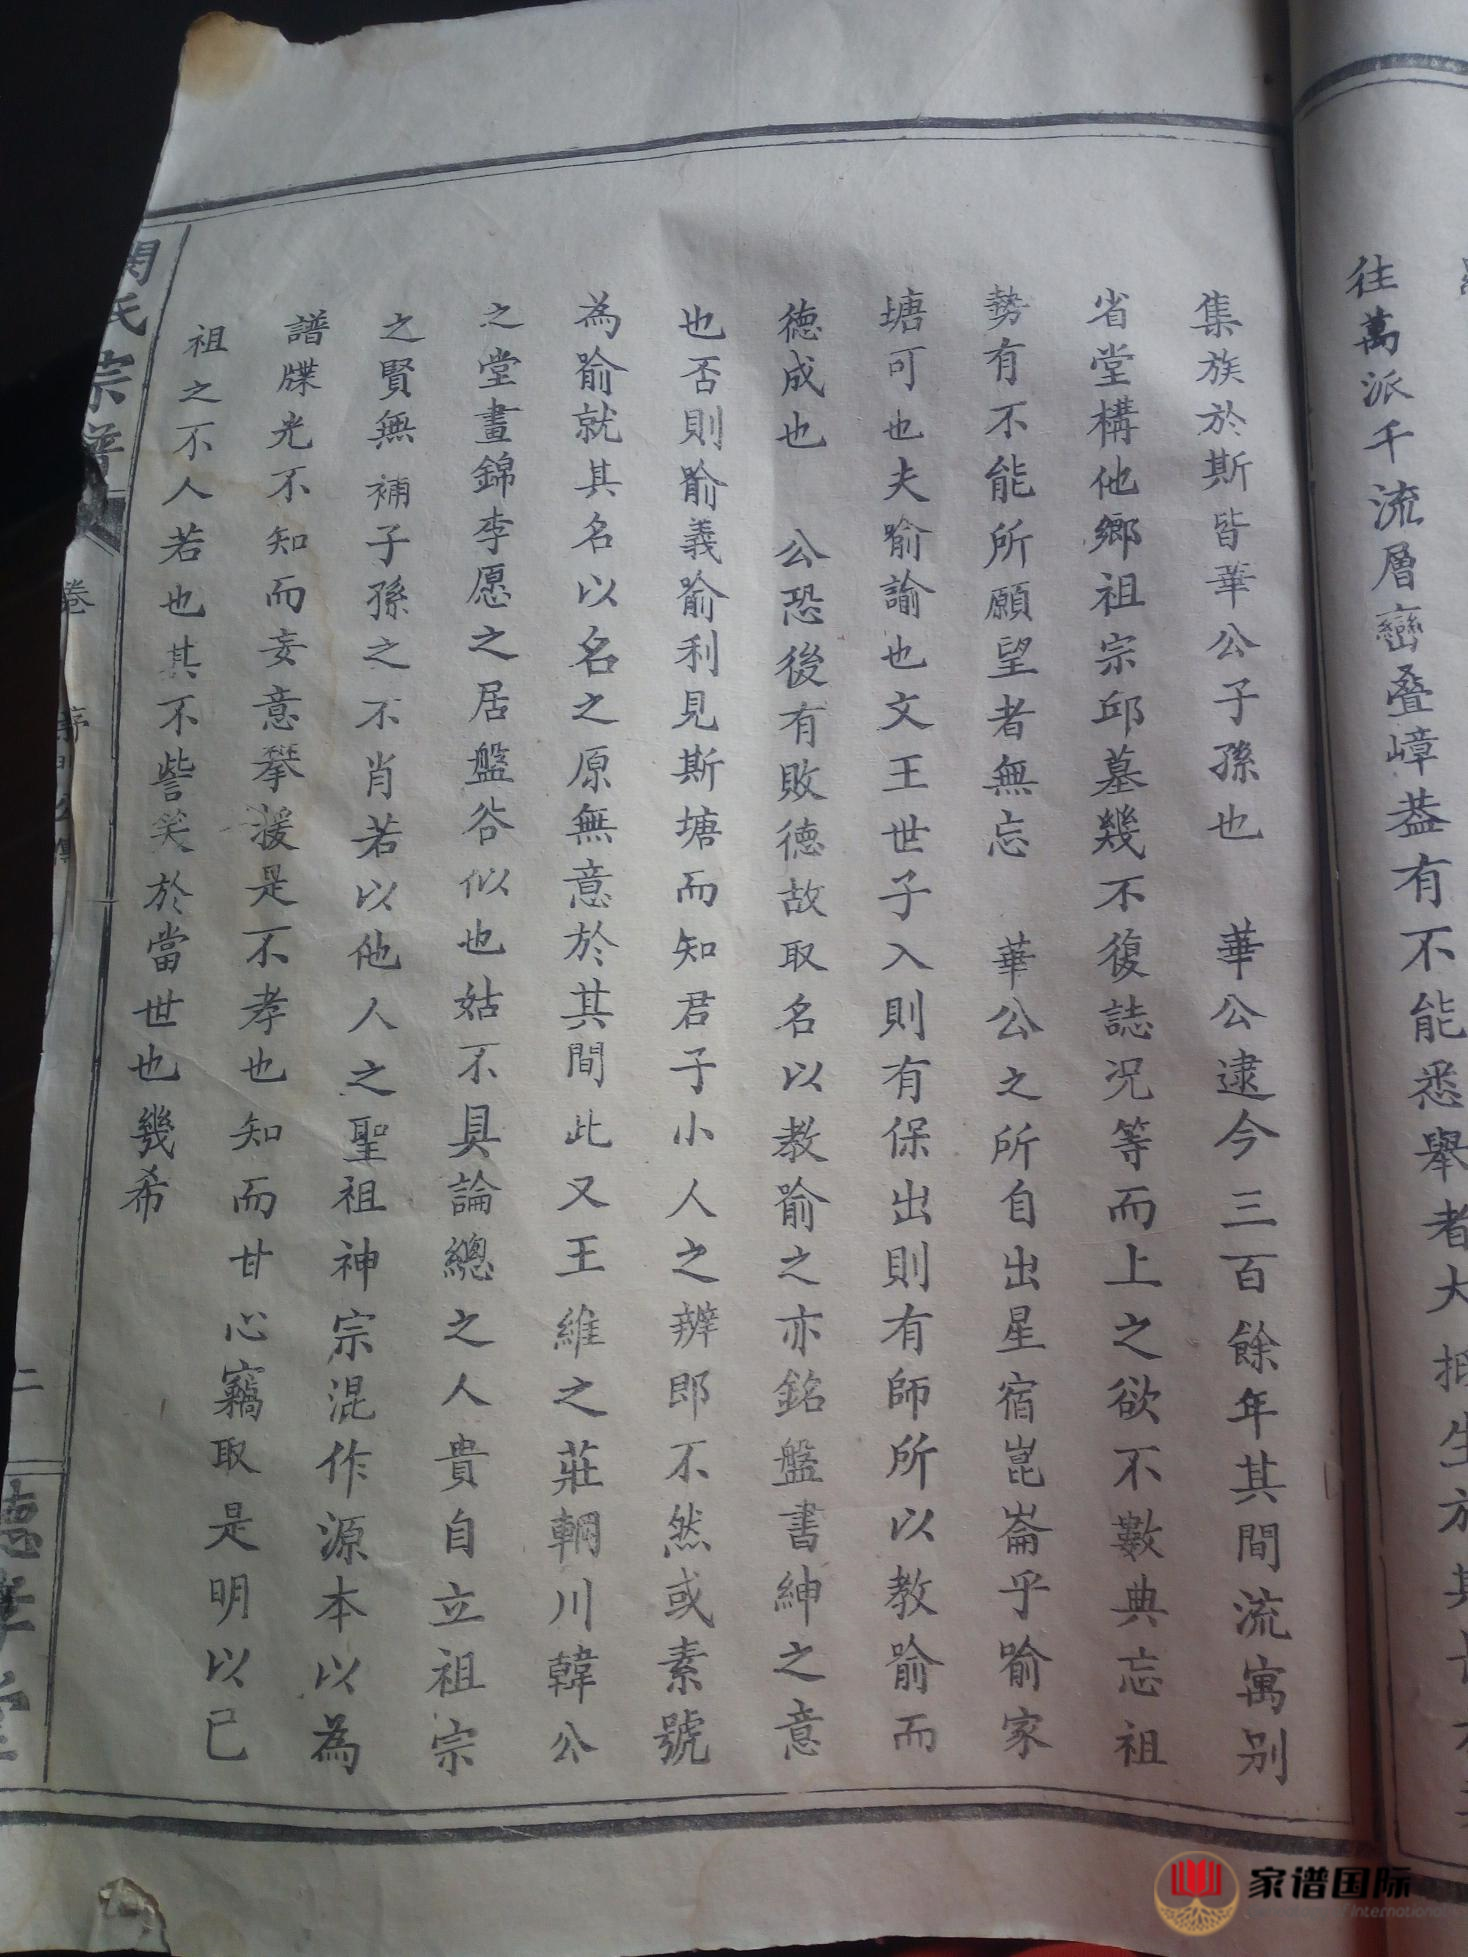 往萬派千流層巒叠嶂葢有不能悉舉者大
集族於斯皆華公子孫也　華公逮今三百餘年其間流寓别
省堂構他鄉祖宗邱墓幾不復誌况等而上之欲不數典忘祖
勢有不能所願望者無忘　華公之所自出星宿崑崙乎喻家
塘可也夫喻諭也文王世子入則有保出則有師所以教喻而
德成也　公恐後有敗德故取名以教喻之亦銘盤書紳之意
也否則喻義喻利見斯塘而知君子小人之辨即不然或素號
為喻就其名以名之原無意於其間此又王維之莊輞川韓公
之堂畫錦李愿之居盤谷似也姑不具論總之人貴自立祖宗
之賢無補子孫之不肖若以他人之聖祖神宗混作源本以為
譜牒光不知而妄意攀援是不孝也知而甘心竊取是明以已
祖之不人若也其不訾笑於當世也幾希
氏宗譜
卷
序
二
家谱国际